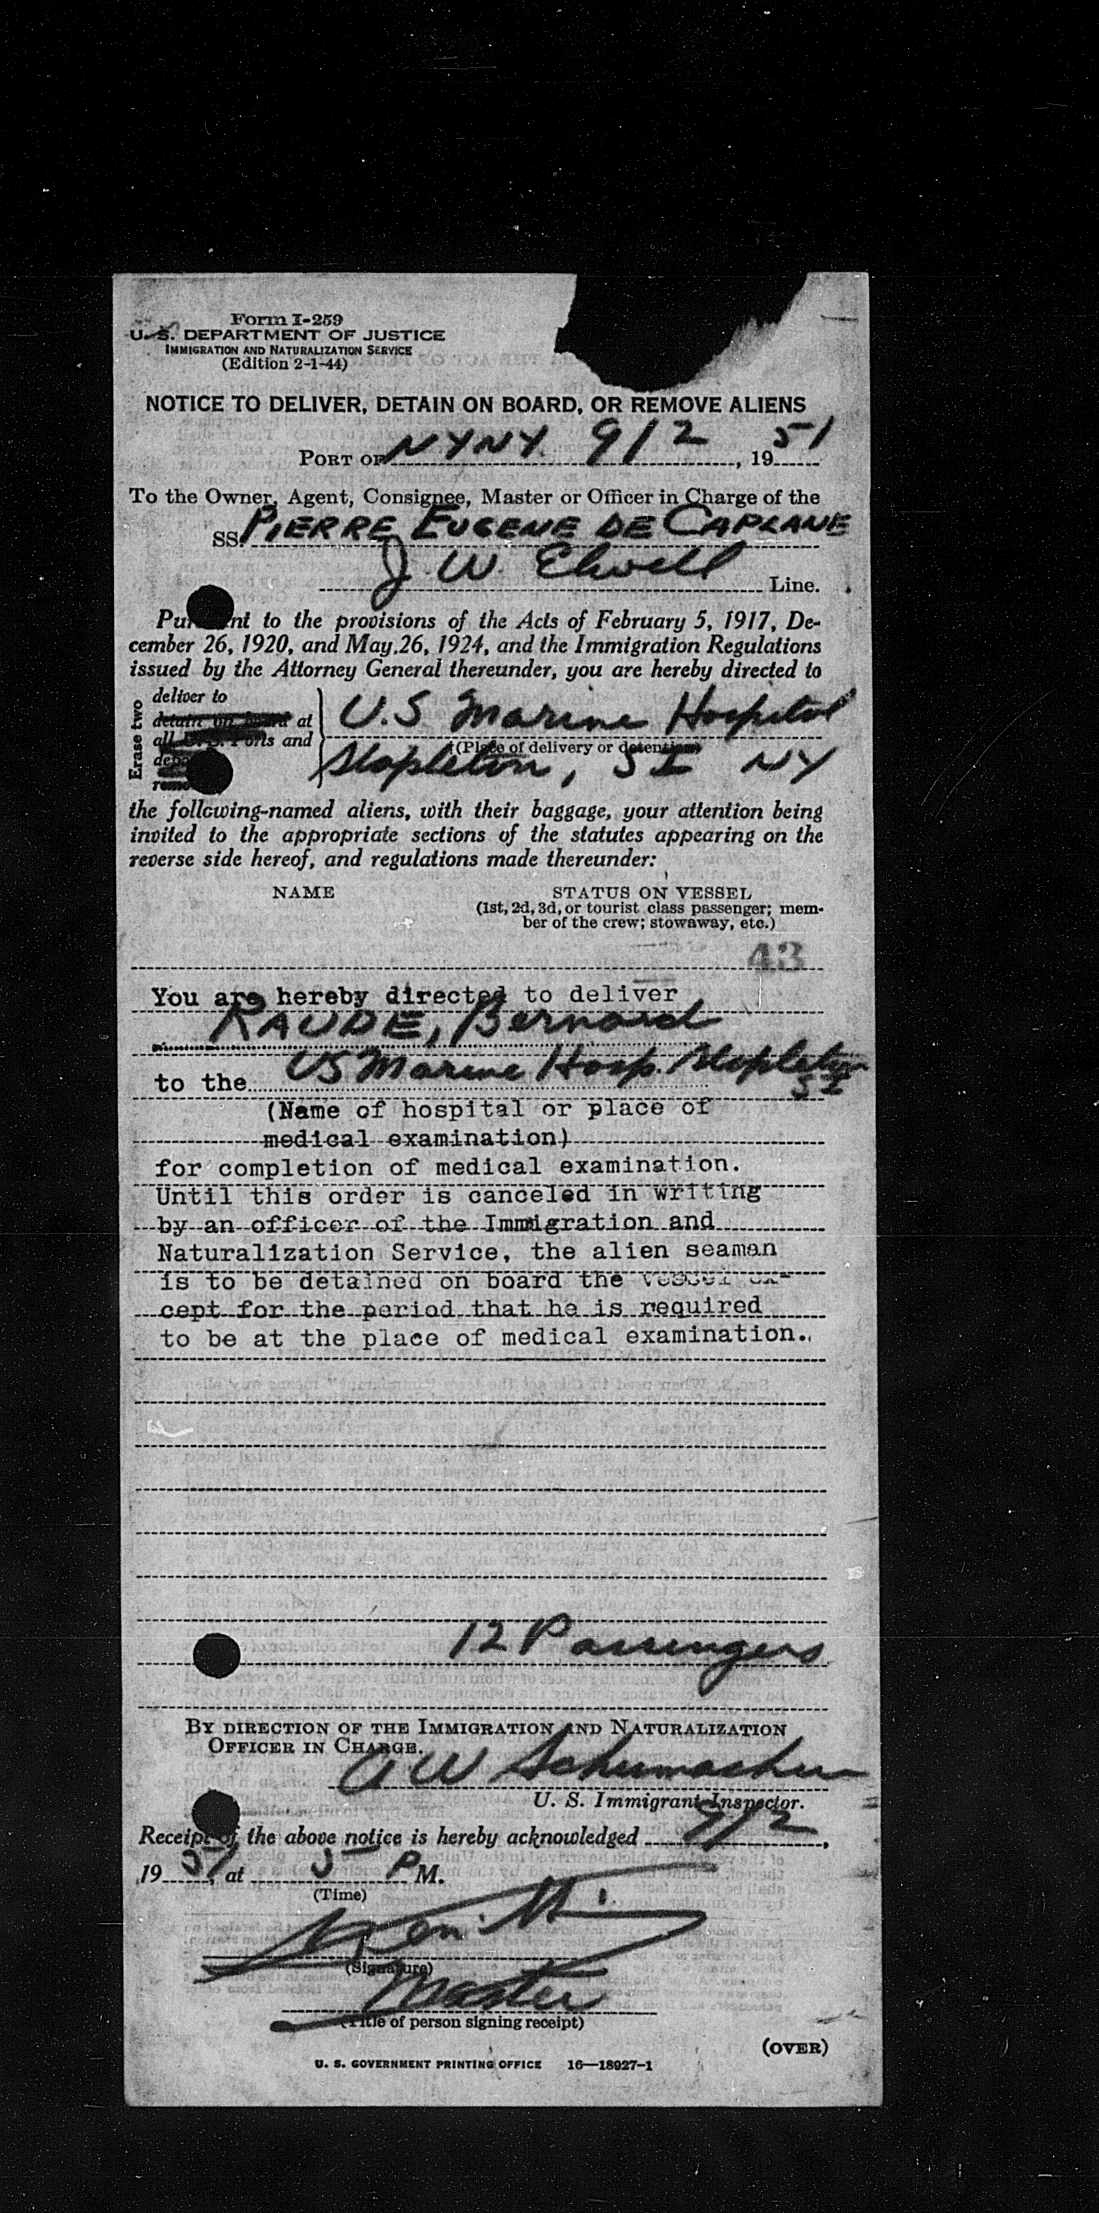 Form I-259
U. S. DEPARTMENT OF JUSTICE
IMMIGRATION AND NATURALIZATION SERVICE
(Edition 2-1-44)
NOTICE TO DELIVER, DETAIN ON BOARD, OR REMOVE ALIENS
PORT OF NYNY 9/2, 1951
To the Owner, Agent, Consignee, Master or Officer in Charge of the
SS. PIERRE EUGENE DE CAPLANE
J. W. Elwell Line.
Pursuant to the provisions of the Acts of February 5, 1917, De-
cember 26, 1920, and May 26, 1924, and the Immigration Regulations
issued by the Attorney General thereunder, you are hereby directed to
Erase two
deliver to
detain on board at
all U. S. Ports and
U.S. Marine Hospital
(Place of delivery or detention)
Stapleton, S I NY
the following-named aliens, with their baggage, your attention being
invited to the appropriate sections of the statutes appearing on the
reverse side hereof, and regulations made thereunder:
NAME STATUS ON VESSEL
(1st, 2d, 3d, or tourist class passenger; mem-
ber of the crew; stowaway, etc.)
43
You are hereby directed to deliver
RAUDE, Bernard
to the US Marine Hosp. Stapleton
S I
(Name of hospital or place of
medical examination)
for completion of medical examination.
Until this order is canceled in writing
by an officer of the Immigration and
Naturalization Service, the alien seaman
is to be detained on board the vessel ex-
cept for the period that he is required
to be at the place of medical examination.
12 Passengers
BY DIRECTION OF THE IMMIGRATION AND NATURALIZATION
OFFICER IN CHARGE.
A W Schumacher
U. S. Immigrant Inspector.
Receipt of the above notice is hereby acknowledged 9/2,
1951, at 5 P M.
(Time)
(Signature)
Master
(Title of person signing receipt)
(OVER)
U. S. GOVERNMENT PRINTING OFFICE 16—18927-1